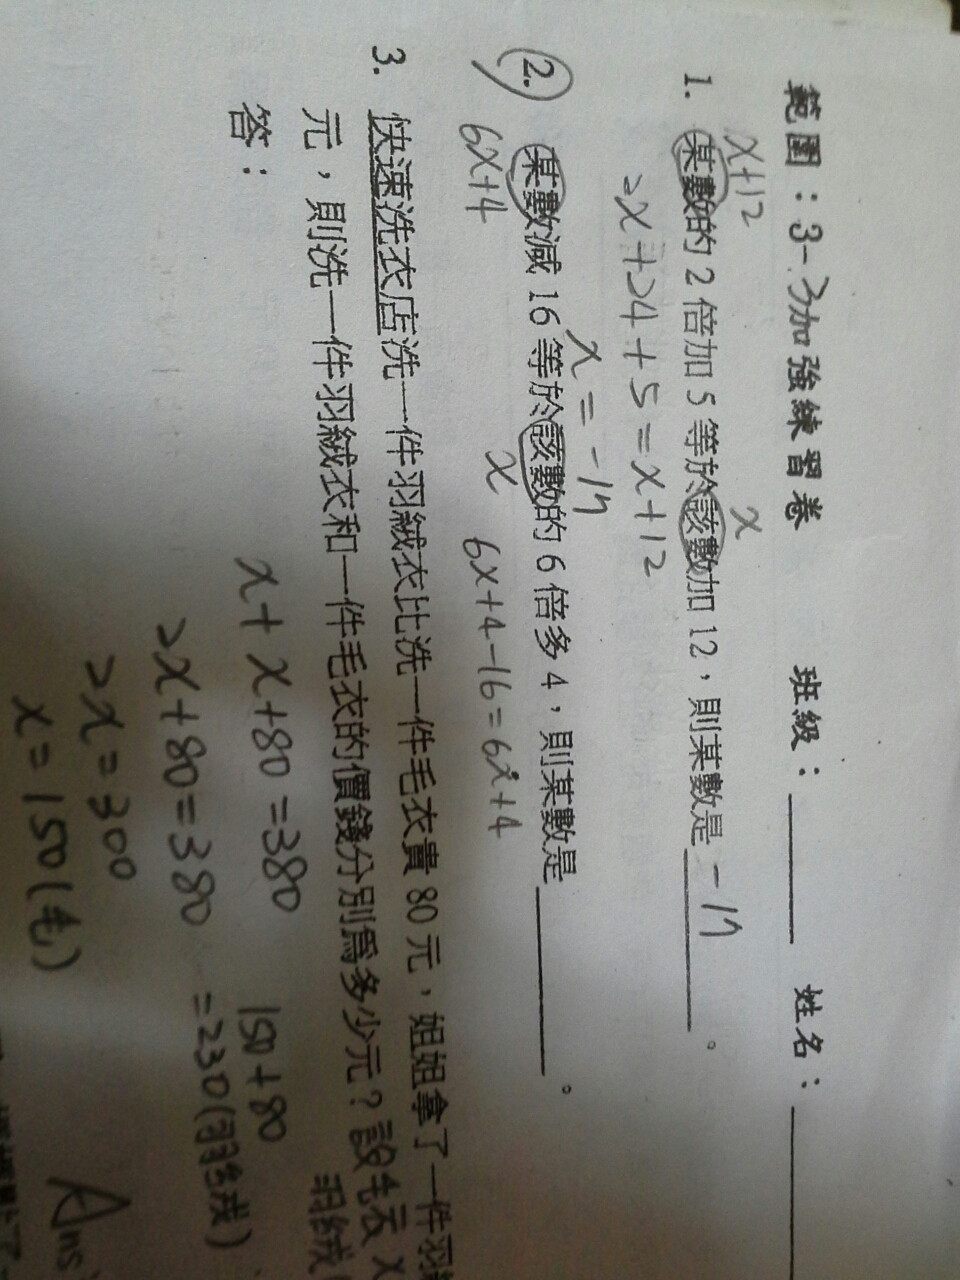 範圍：3-3加強練習卷 班級： 姓名：
x+12 x
1. 某數的 2 倍加 5 等於該數加 12，則某數是 -17 。
2x+24+5=x+12
x=-17
2. 某數減 16 等於該數的 6 倍多 4，則某數是 。
6x+4 x 6x+4-16=6x+4
3. 快速洗衣店洗一件羽絨衣比洗一件毛衣貴 80 元，姐姐拿了一件羽
元，則洗一件羽絨衣和一件毛衣的價錢分別為多少元？設毛衣 x
羽絨
答：
x+x+80=380
2x+80=380
2x=300
x=150(毛)
150+80
=230(羽絨)
Ans